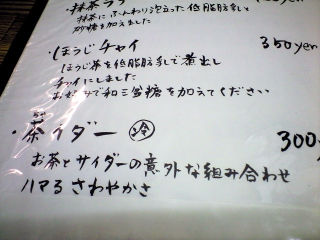 ・抹茶ラテ
抹茶にふんわり泡立った低脂肪乳と
砂糖を加えました
・ほうじチャイ 350yen
ほうじ茶を低脂肪乳で煮出し
チャイにしました
お好みで和三盆糖を加えてください
・茶イダー 冷 300
お茶とサイダーの意外な組み合わせ
ハマるさわやかさ